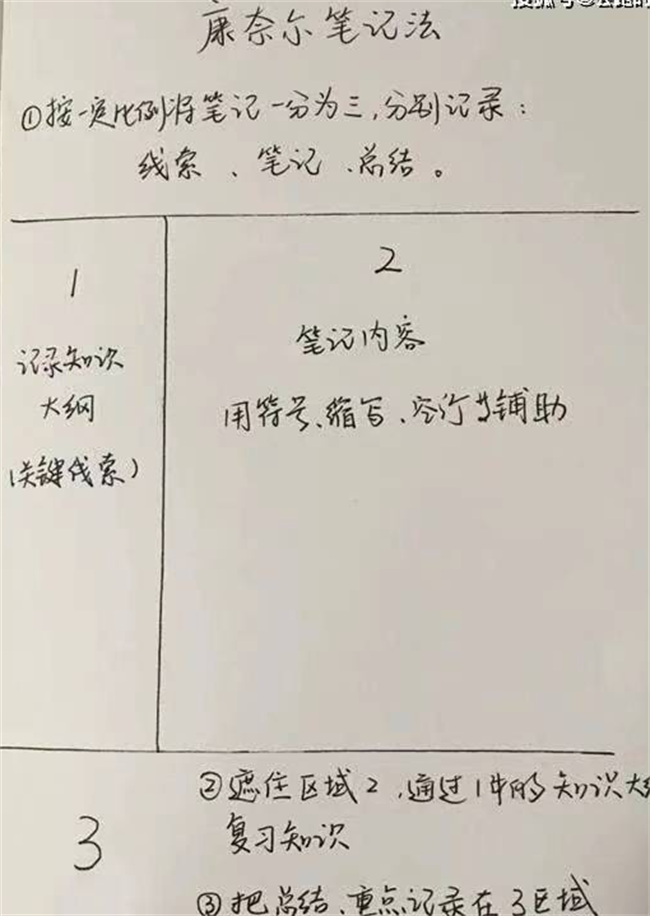 康奈尔笔记法
①按一定比例将笔记一分为三,分别记录:
线索、笔记、总结。
1
记录知识
大纲
(关键线索)
2
笔记内容
用符号、缩写、空行等辅助
3
②遮住区域2,通过1中的知识大纲
复习知识
③把总结、重点记录在3区域